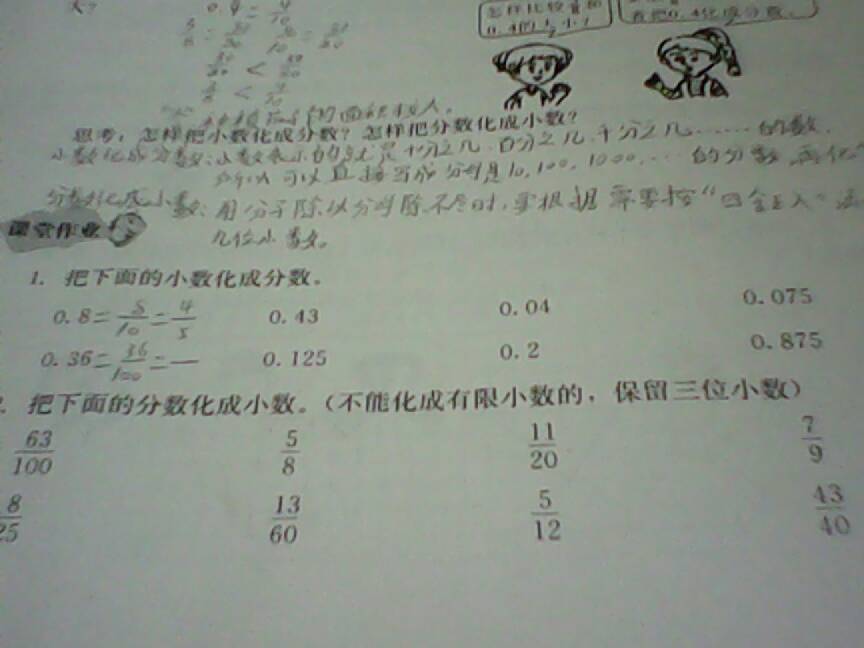 大？
0.4=4/10
怎样比较
0.4的大小？
我把0.4化成分数。
<
<
的面积较大。
思考：怎样把小数化成分数？怎样把分数化成小数？
小数化成分数：小数表示的就是十分之几，百分之几，千分之几……的数，
所以可以直接写成分母是10，100，1000，…的分数，再化
分数化成小数：用分子除以分母除不尽时，要根据需要按“四舍五入”
几位小数。
课堂作业
1. 把下面的小数化成分数。
0.8=8/10=4/5 0.43 0.04 0.075
0.36=36/100=— 0.125 0.2 0.875
把下面的分数化成小数。（不能化成有限小数的，保留三位小数）
63/100 5/8 11/20 7/9
8/25 13/60 5/12 43/40